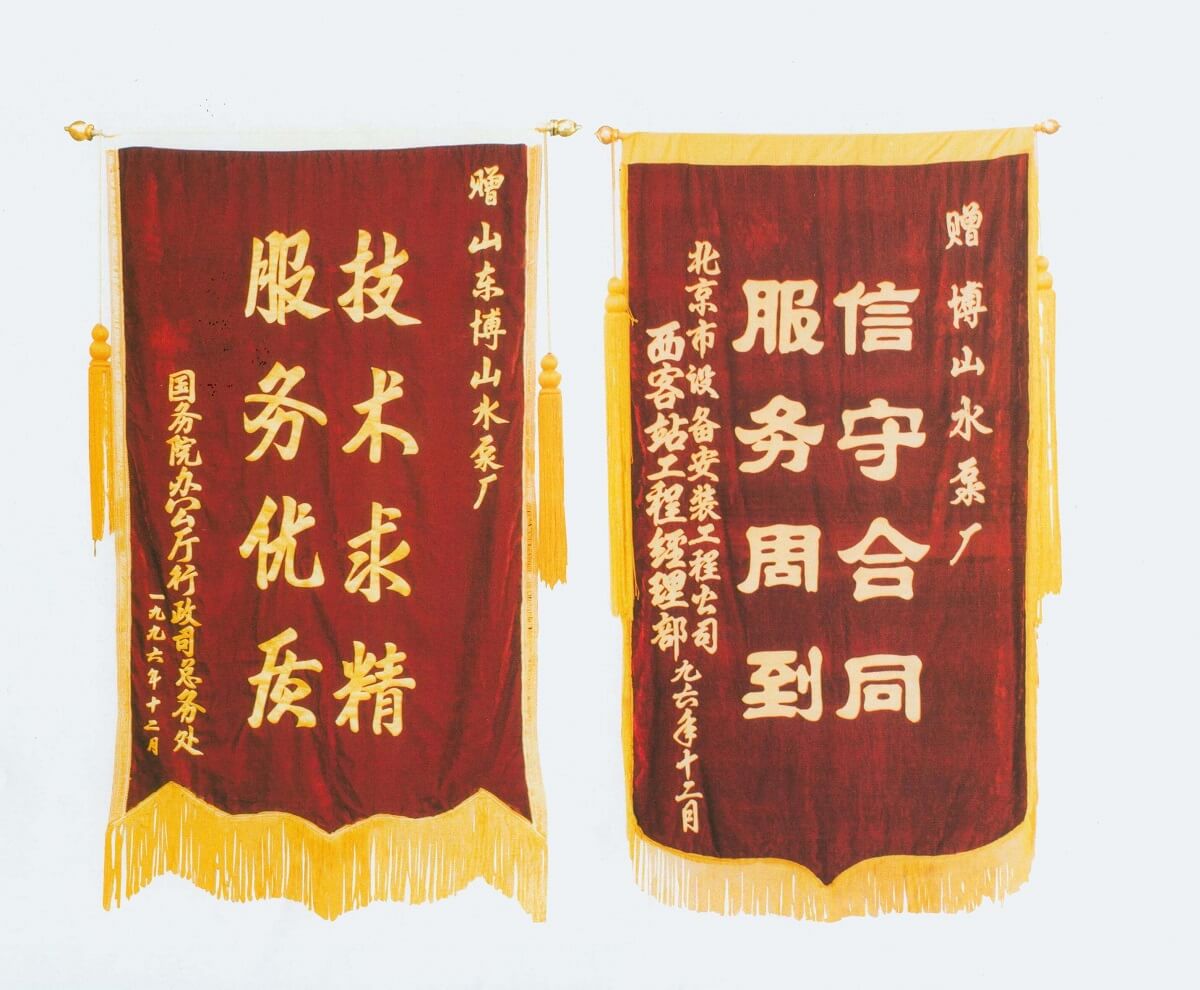 赠山东博山水泵厂
技术求精
服务优质
国务院办公厅行政司总务处
一九九六年十二月
赠博山水泵厂
信守合同
服务周到
北京市设备安装工程公司
西客站工程经理部
九六年十二月